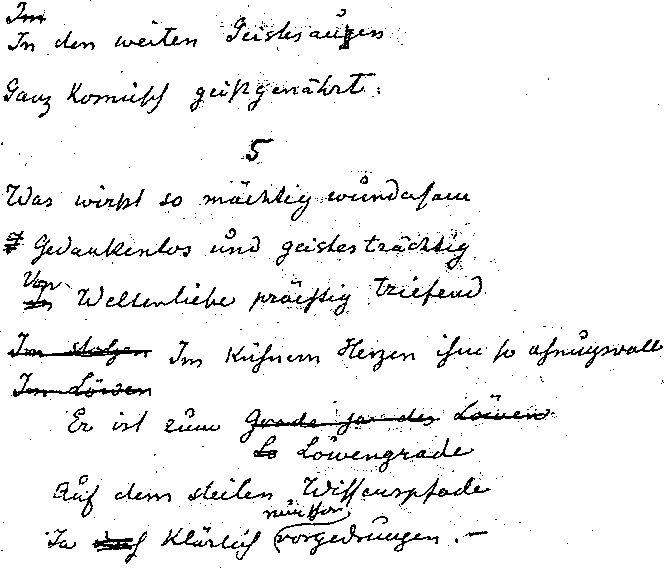 Im
In den weiten Geistesaugen
Ganz Komisch geistgenährt.
5
Was wirkt so mächtig wundersam
Gedankenlos und geistesträchtig
Von
Weltenliebe kräftig triefend
Im stolzen Im Kühnem Herzen ihm so ahnugsvoll
Im Löwen
Er ist zum Grade ja des Löwen
Lö Löwengrade
Auf dem steilen Wissenspfade
Ja klärlich vorgedrungen. –